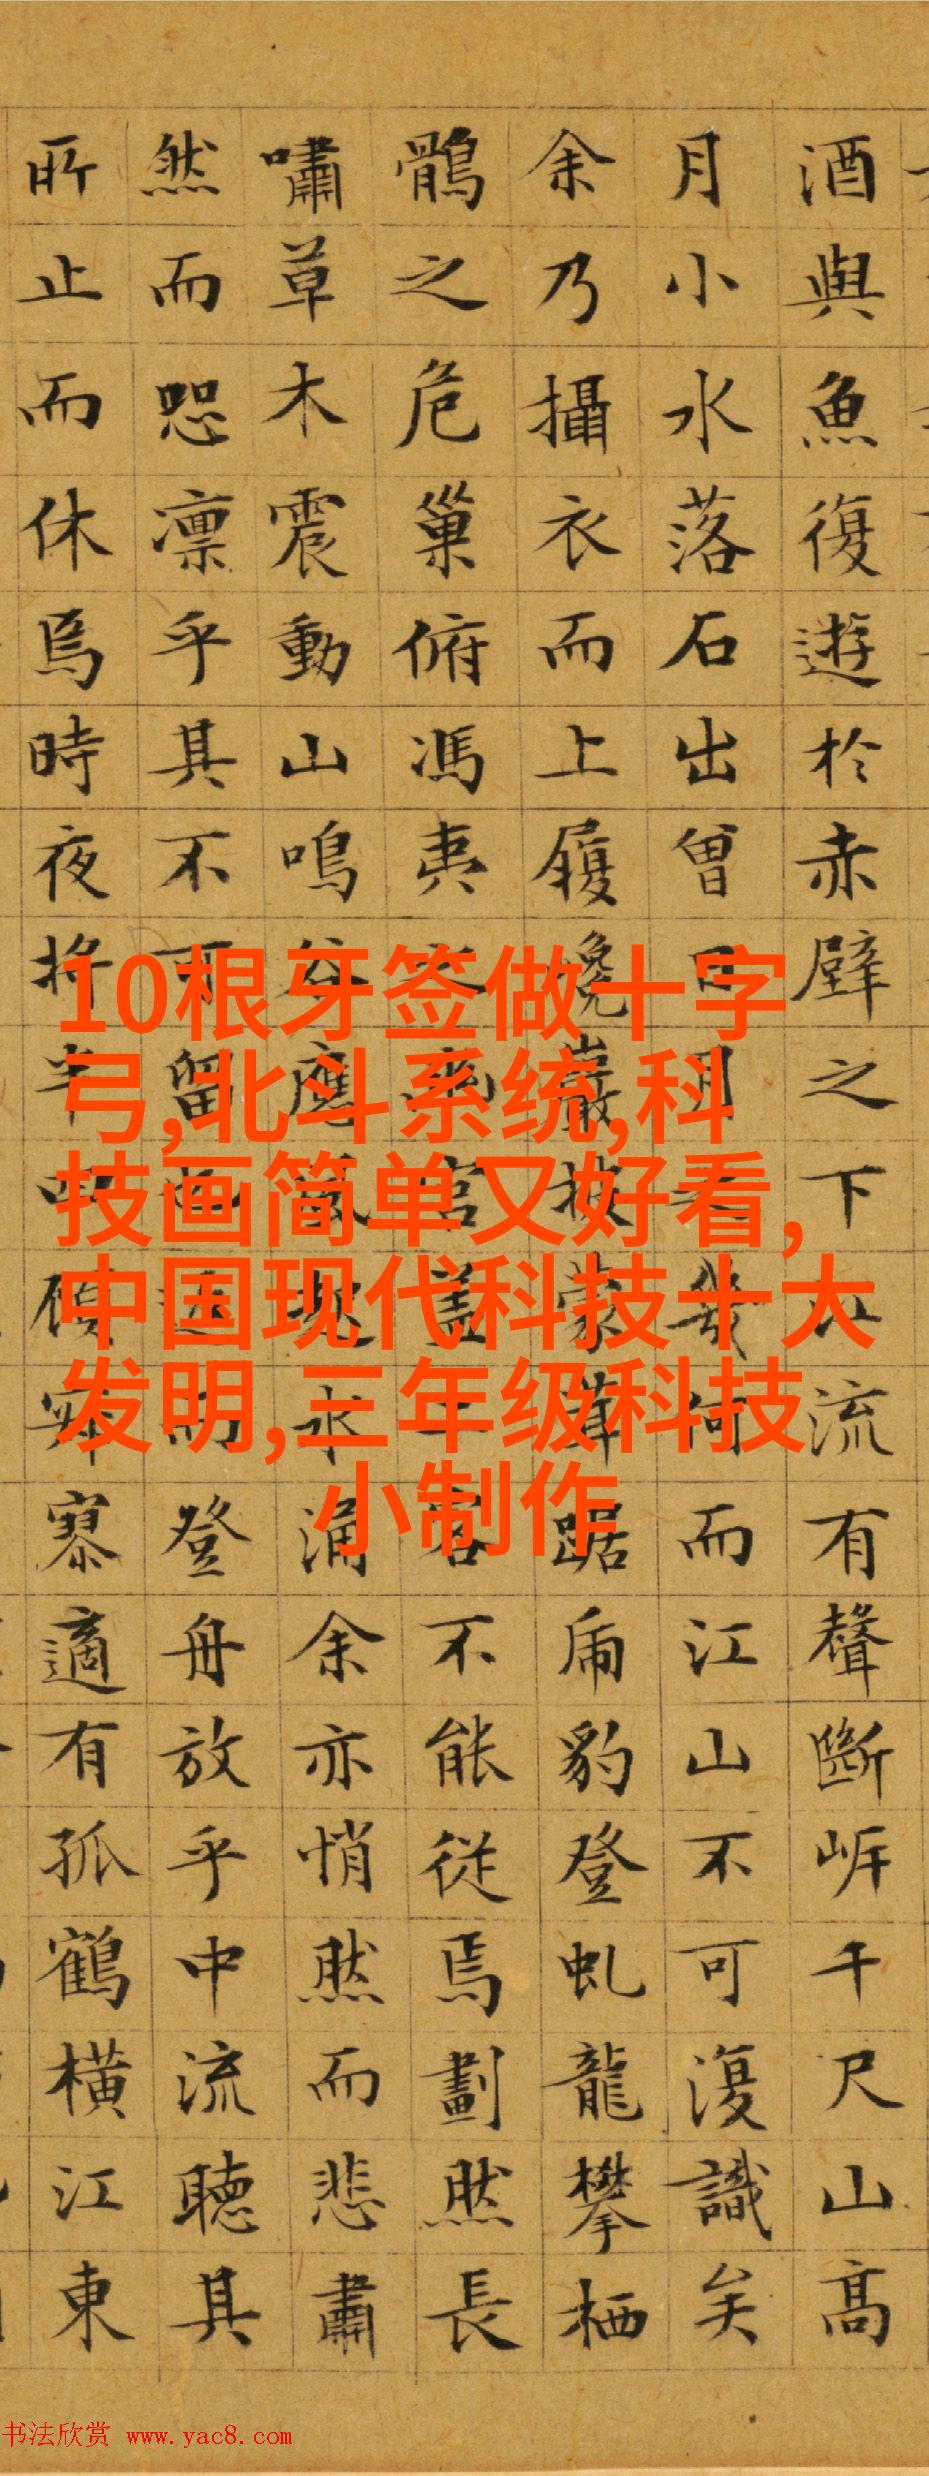 酒與魚復遊於赤壁之下江流有聲斷岸千尺山高
月小水落石出曾日月之幾何而江山不可復識矣
余乃攝衣而上履巉巖披蒙茸踞虎豹登虬龍攀栖
鶻之危巢俯馮夷之幽宮蓋二客不能從焉劃然長
嘯草木震動山鳴谷應風起水涌余亦悄然而悲肅
然而恐凛乎其不可留也返而登舟放乎中流聽其
所止而休焉時夜將半四顧寂寥適有孤鶴橫江東
10根牙签做十字
弓,北斗系统,科
技画简单又好看,
中国现代科技十大
发明,三年级科技
小制作
书法欣赏 www.yac8.com